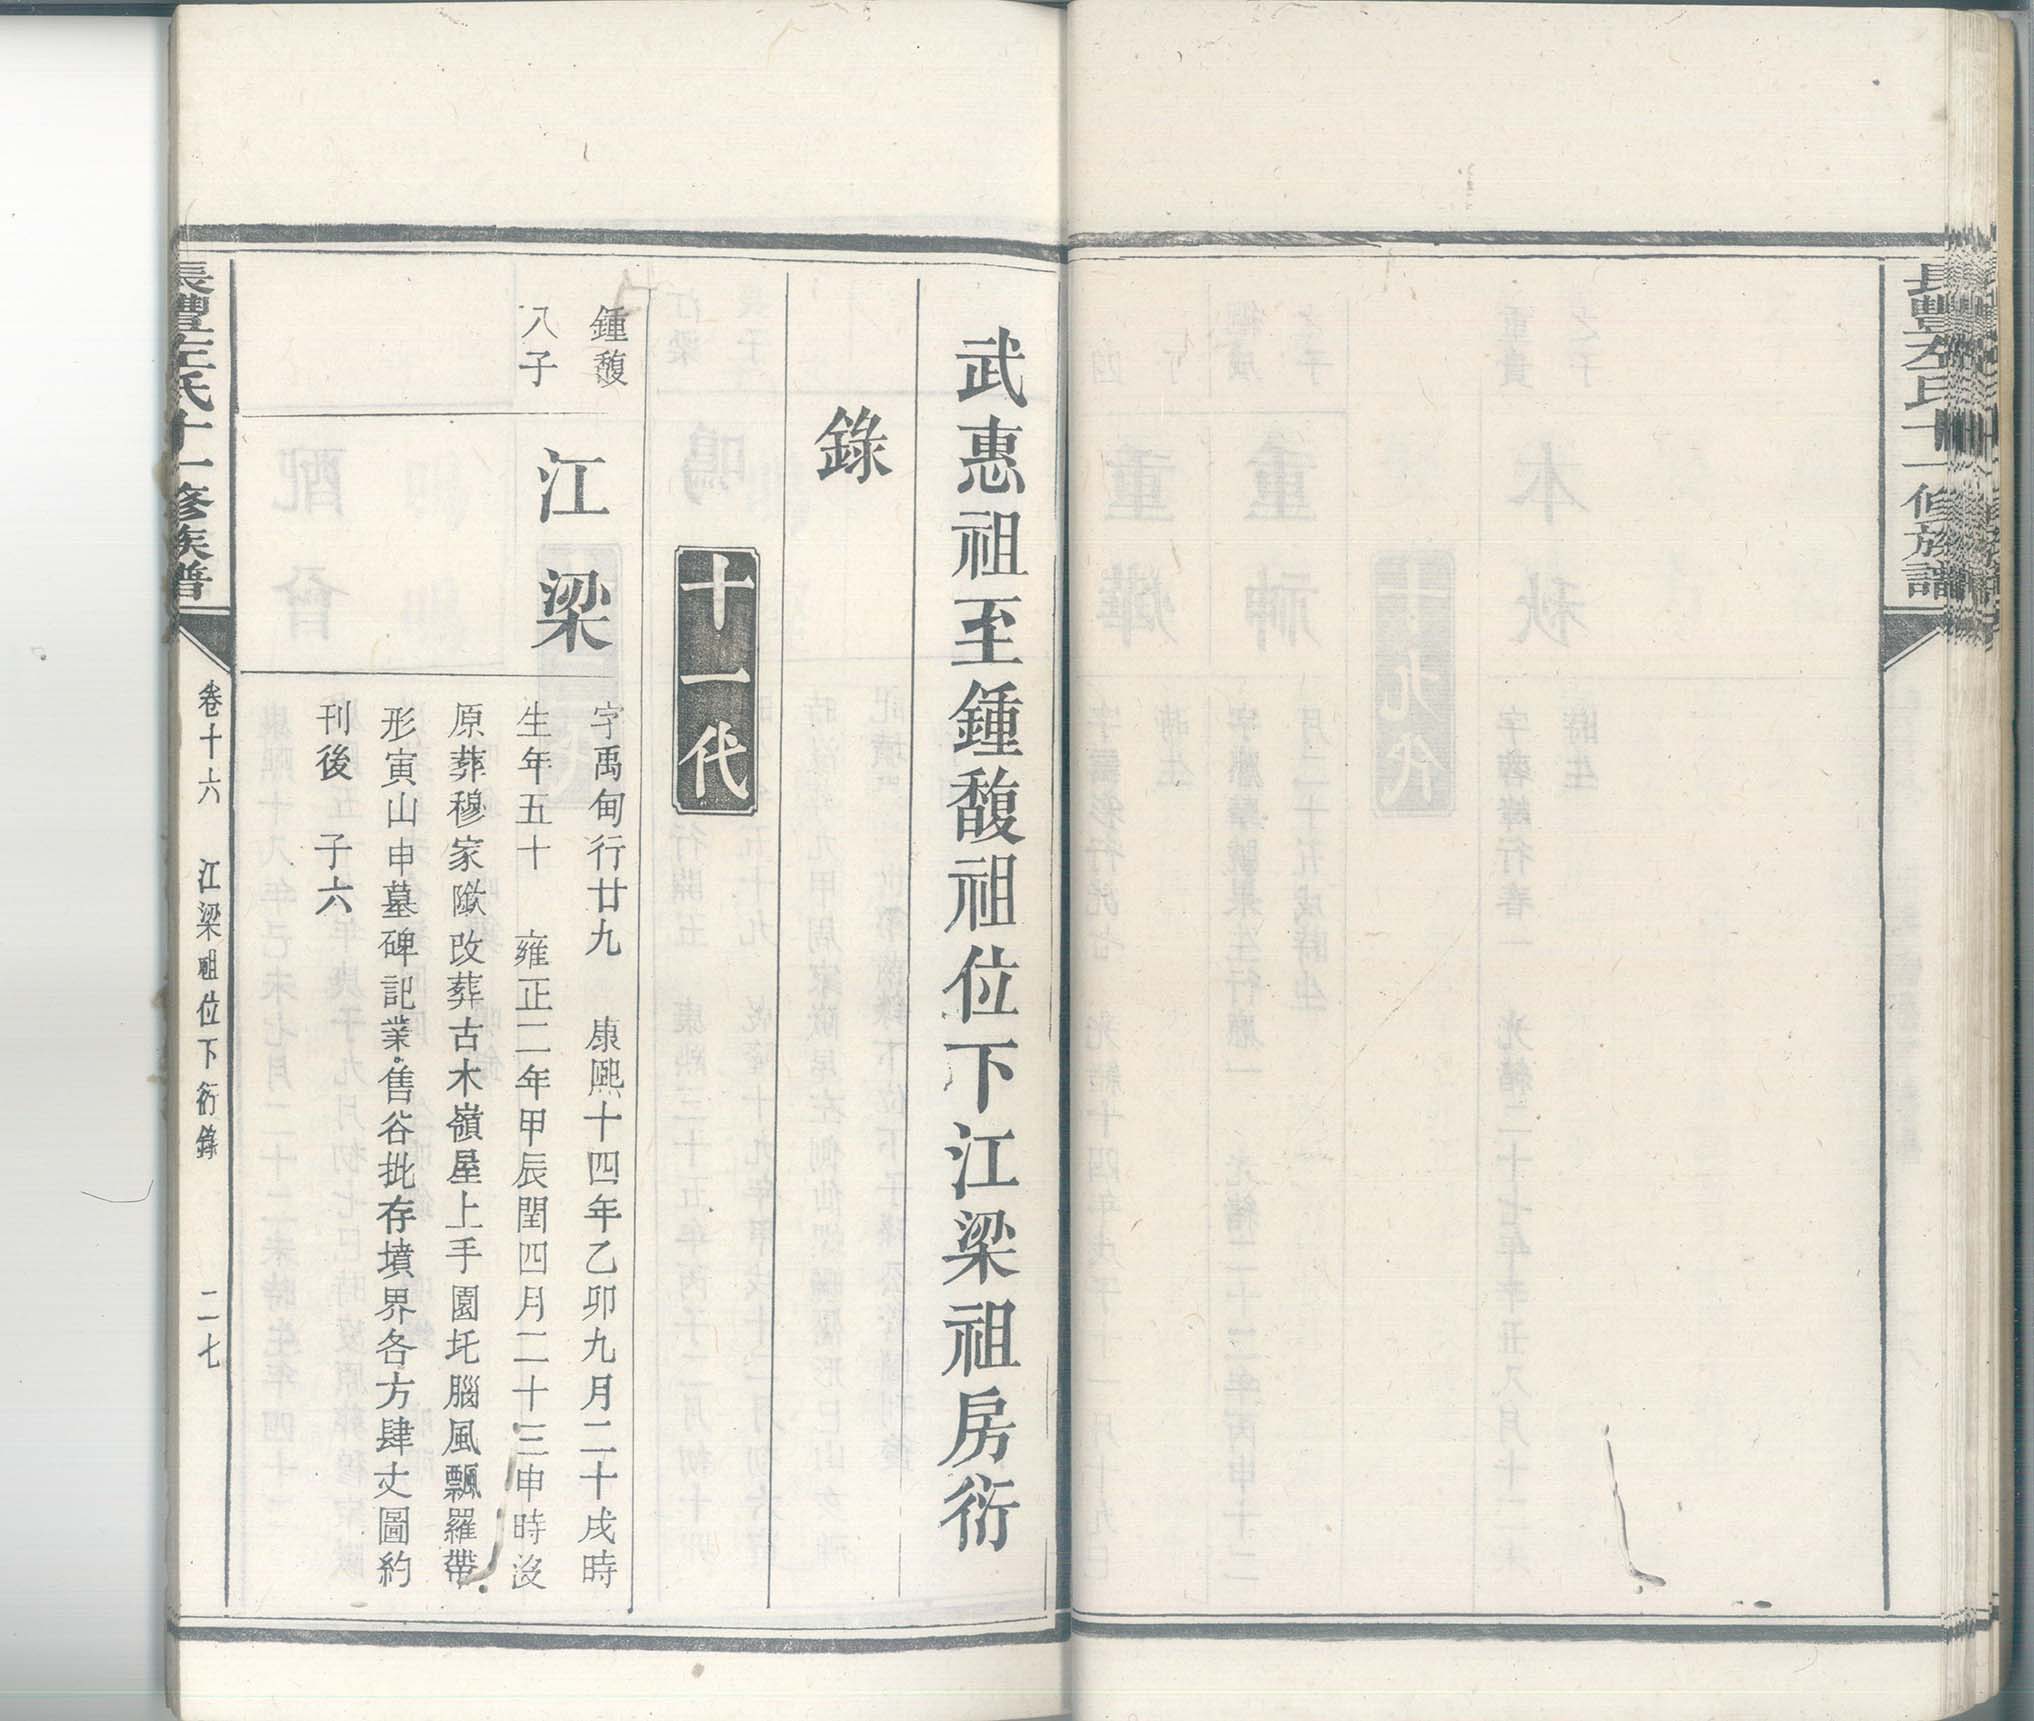 長豐左氏十一修族譜
武惠祖至鍾馥祖位下江梁祖房衍
錄
十一代
鍾馥
八子
江梁
字禹甸行廿九 康熙十四年乙卯九月二十戌時
生年五十 雍正二年甲辰閏四月二十三申時沒
原葬穆家墩改葬古木嶺屋上手園圫腦風飄羅帶
形寅山申墓碑記業售谷批存墳界各方肆丈圖約
刊後 子六
長豐左氏十一修族譜
卷十六 江梁祖位下衍錄 二七